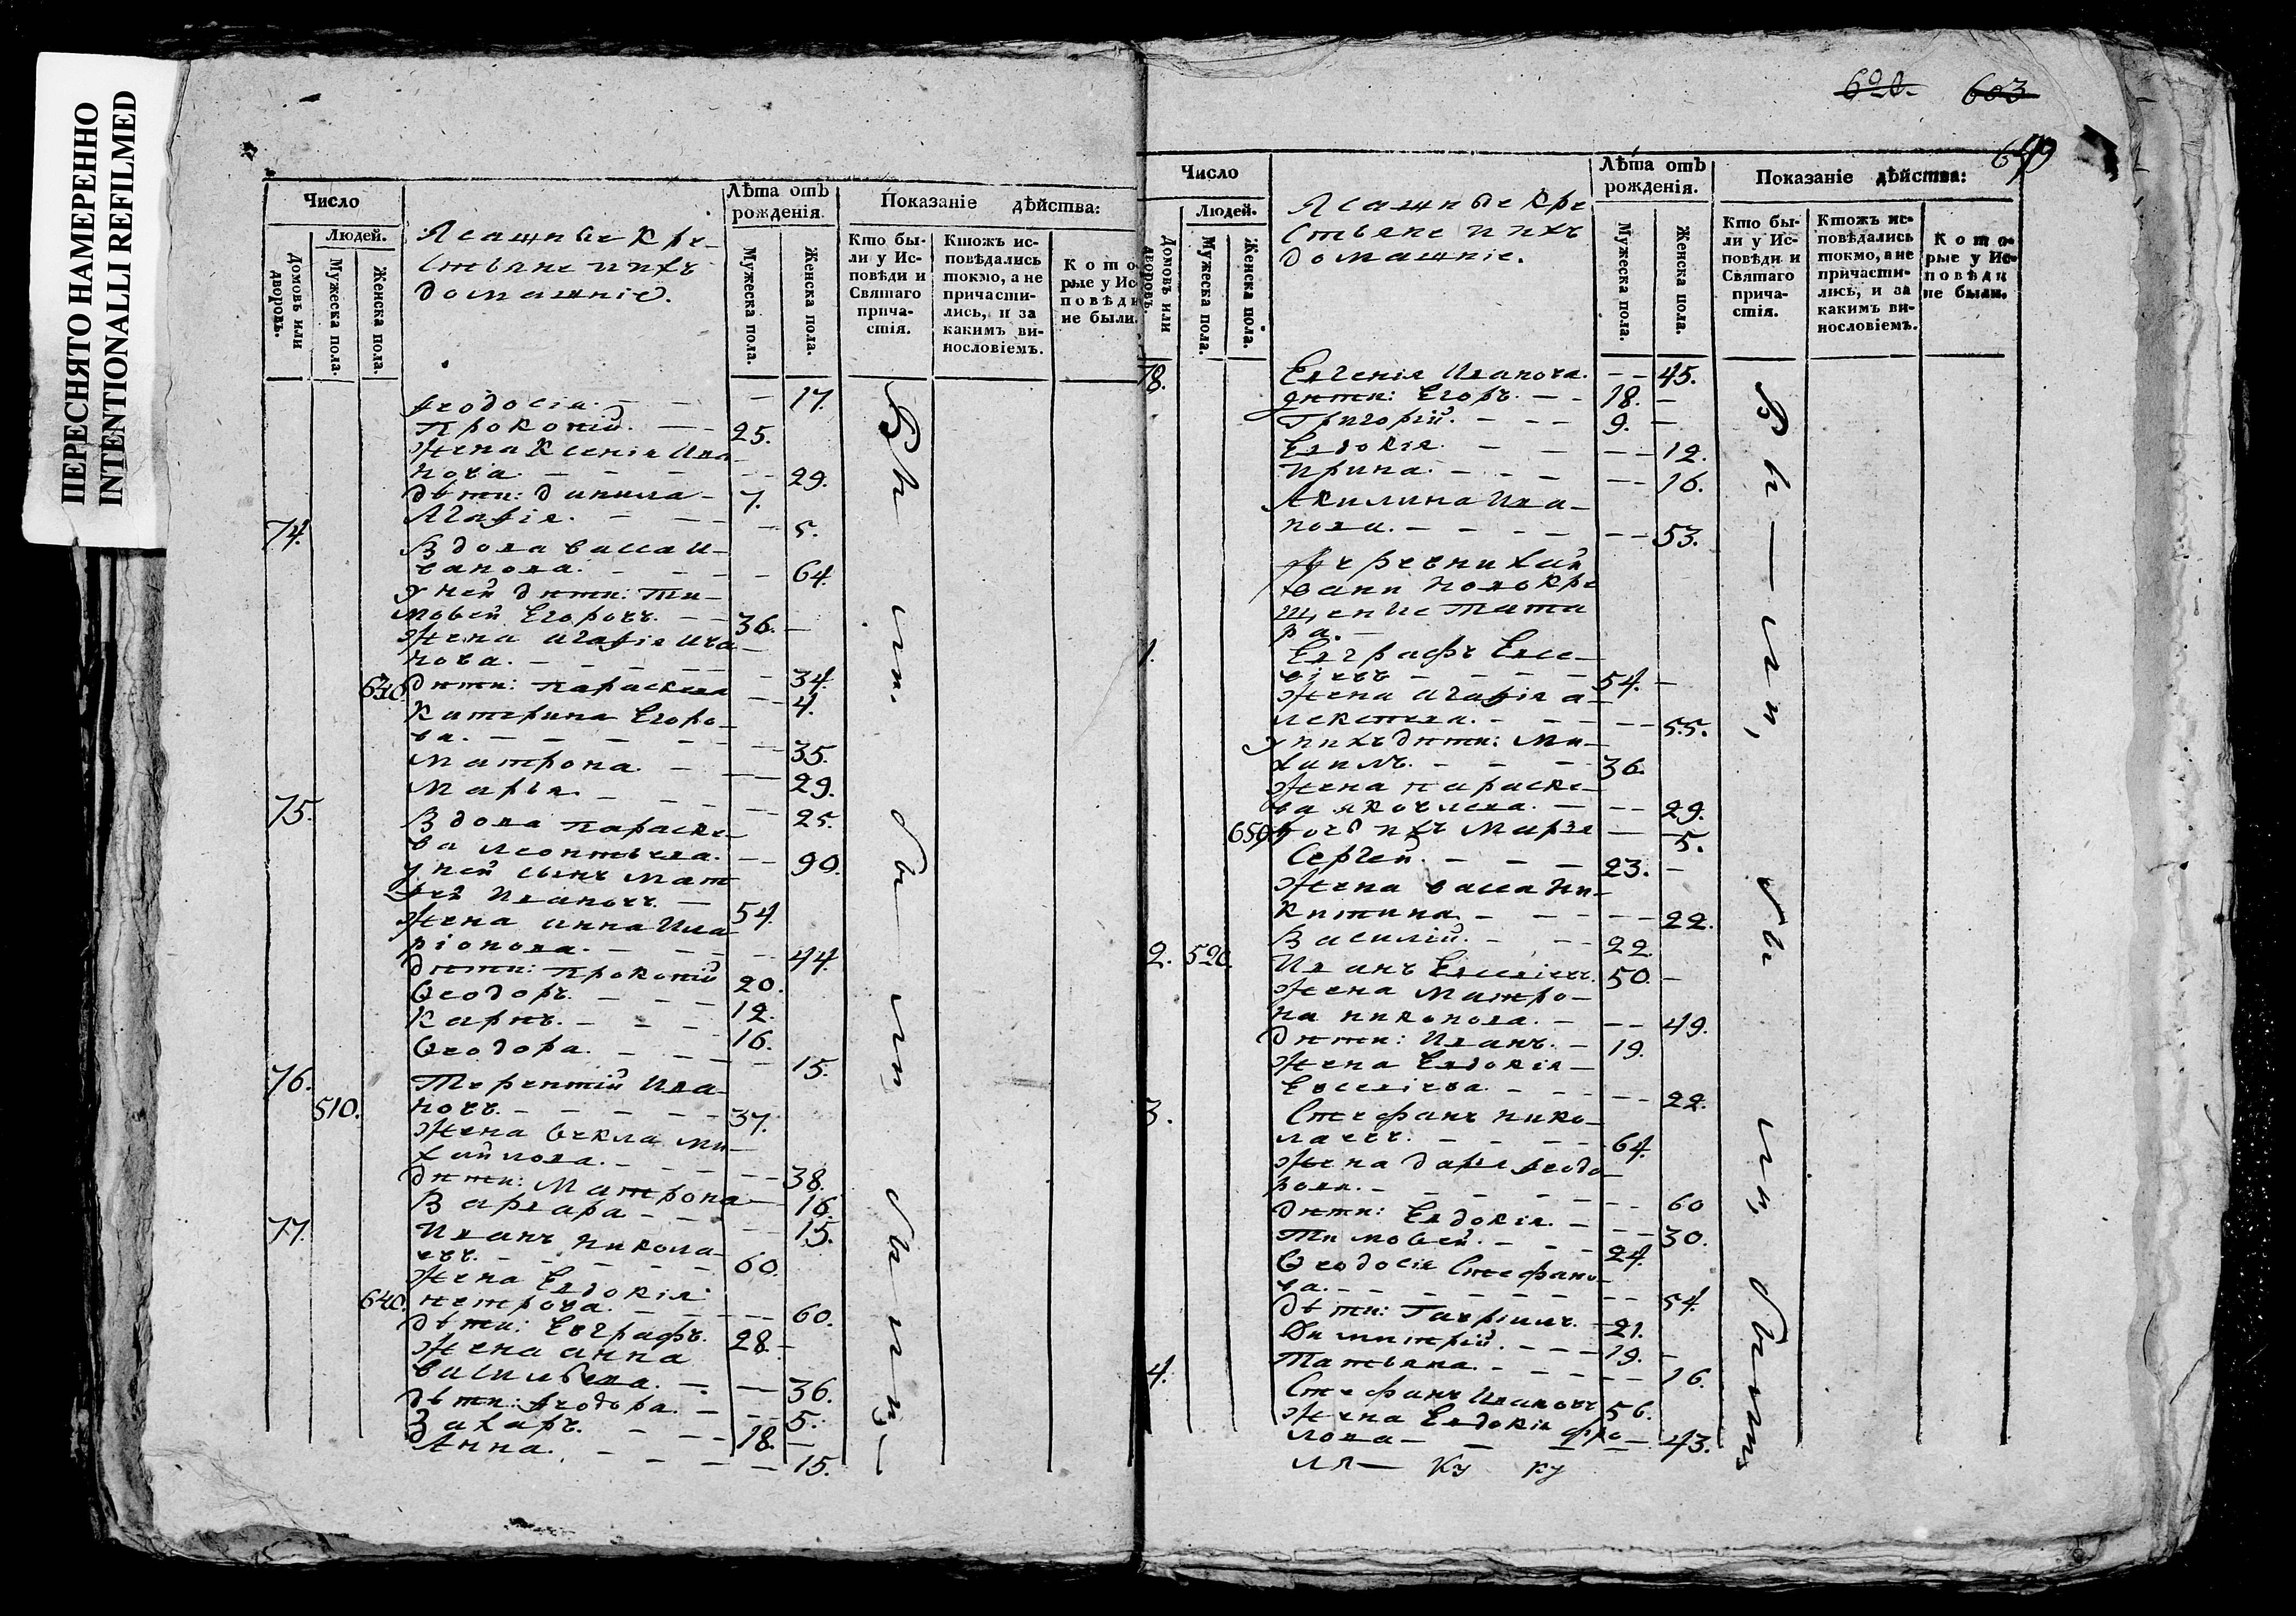 ПЕРЕСНЯТО НАМЕРЕННО
INTENTIONALLI REFILMED
Число
Людей.
Домовъ или дворовъ.
Мужеска пола.
Женска пола.
Ясашные Кре-
стьяне и ихъ
домашніе.
Лѣта отъ рожденія.
Мужеска пола.
Женска пола.
Показаніе дѣйства:
Кто бы-
ли у Ис-
повѣди и
Святаго
прича-
стія.
Ктожъ ис-
повѣдались
токмо, а не
причасти-
лись, и за
какимъ ви-
нословіемъ.
Кото
рые у Ис
повѣди
не были.
Ѳеодосіа. — 17.
Прокопій. — 25.
Жена Ксеніа Ива
нова. — 29.
Дѣти: Данила — 7.
Агафіа. — 5.
74. Вдова Васса И-
ванова. — 64.
у ней дѣти: Ти-
мовей Егоровъ. — 36. —
Жена Агафіа Ива
нова. — 34.
630. дѣти: Параскева — 4.
Катерина Егоро-
ва. — 35.
Матрона. — 29.
Марья. — 25.
75. Вдова Параске-
ва Леонтьева. — 90.
у ней сынъ Мат
фей Ивановъ. — 54.
Жена Анна Ила
ріонова. — 44.
дѣти: Прокопій 20.
Ѳеодоръ. — 12.
Карпъ. — 16.
Ѳеодора. — 15.
76. Терентій Ива-
510. новъ. — 37.
Жена Ѳекла Ми-
хайлова. — 38.
дѣти: Матрона — 16.
Варвара — 15.
77. Иванъ Никола-
евъ. — 60.
Жена Евдокіа
640. Петрова. — 60.
дѣти: Евграфъ. 28. —
Жена Анна
Васильева. — 36.
дѣти: Ѳеодора. — 5.
Захаръ. — 18. —
Анна. — 15.
Бы ли. бы ли бы ли
620. 603
699
Число
Людей.
Домовъ или дворовъ.
Мужеска пола.
Женска пола.
Ясашные Кре
стьяне и ихъ
домашніе.
Лѣта отъ рожденія.
Мужеска пола.
Женска пола.
Показаніе дѣйства:
Кто бы-
ли у Ис-
повѣди и
Святаго
прича-
стія.
Ктожъ ис-
повѣдались
токмо, а не
причасти-
лись, и за
какимъ ви-
нословіемъ.
Кото-
рые у Ис-
повѣди
не были.
78. Евгеніа Иванова. — 45.
дѣти: Егоръ. — 18. —
Григорій. — 9. —
Евдокіа — 12.
Ирина. — 16.
Акилина Ива-
нова. — 53.
Новокре
щеные Тата
ра. —
1. Евграфъ Евсе-
віевъ — 54. —
Жена Агафіа А-
лексеева. — 55.
у нихъ дѣти: Ми-
хаилъ. — 36.
Жена Параске-
ва Яковлева. — 29.
650. дочь ихъ Марѳа — 5.
Сергей. — 23. —
Жена Васса Ни-
китина — 22.
Василій. — 22.
2. 520. Иванъ Евсевіевъ. 50. —
Жена Матро-
на Никонова. — 49.
дѣти: Иванъ. — 19.
Жена Евдокіа —
Евсевіева. — 22.
3. Стефанъ Нико-
лаевъ. — 64.
Жена Дарья Ѳеодо-
рова. — 60
дѣти: Евдокіа. — 30.
Тимовей. — 24.
Ѳеодосіа Стефано-
ва. — 54.
Дѣти: Гавріилъ. — 21.
Димитрій. — 19. —
Татьяна. — 16.
4. Стефанъ Ивановъ 56.
Жена Евдокіа Фро
лова — 43.
Бы — ли, бы ли, были